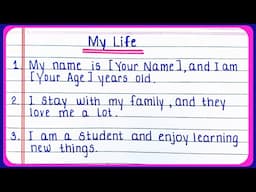 My Life
1. My name is [Your Name], and I am
[Your Age] years old.
2. I stay with my family, and they
love me a lot.
3. I am a student and enjoy learning
new things.